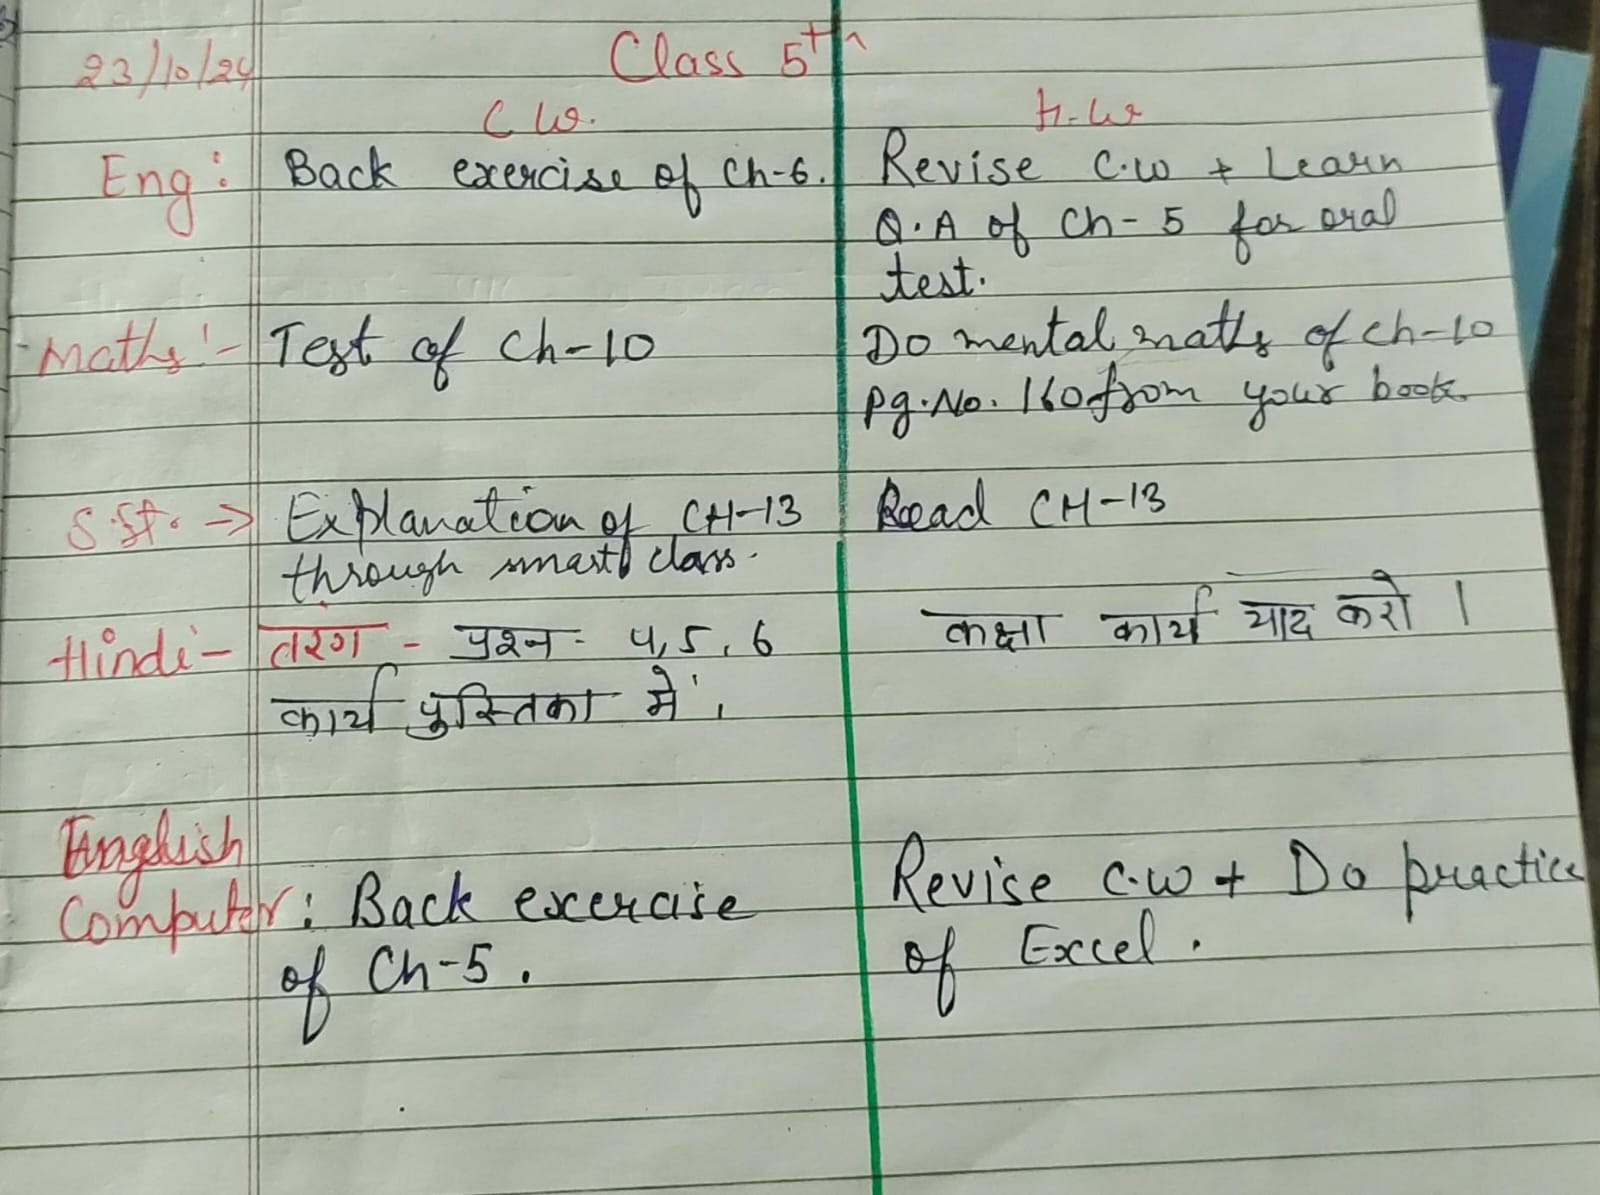 23/10/24
Class 5th
C W.
H.W
Eng: Back exercise of Ch-6. Revise C.W + Learn
Q.A of Ch-5 for oral
test.
Maths:- Test of Ch-10 Do mental maths of ch-10
Pg.No. 160 from your book.
S.St. → Explanation of CH-13 Read CH-13
through smart class.
Hindi- तरंग - प्रश्न- 4, 5, 6 कक्षा कार्य याद करो ।
कार्य पुस्तिका में ।
English
Computer: Back exercise Revise C.W + Do practice
of Ch-5. of Excel.